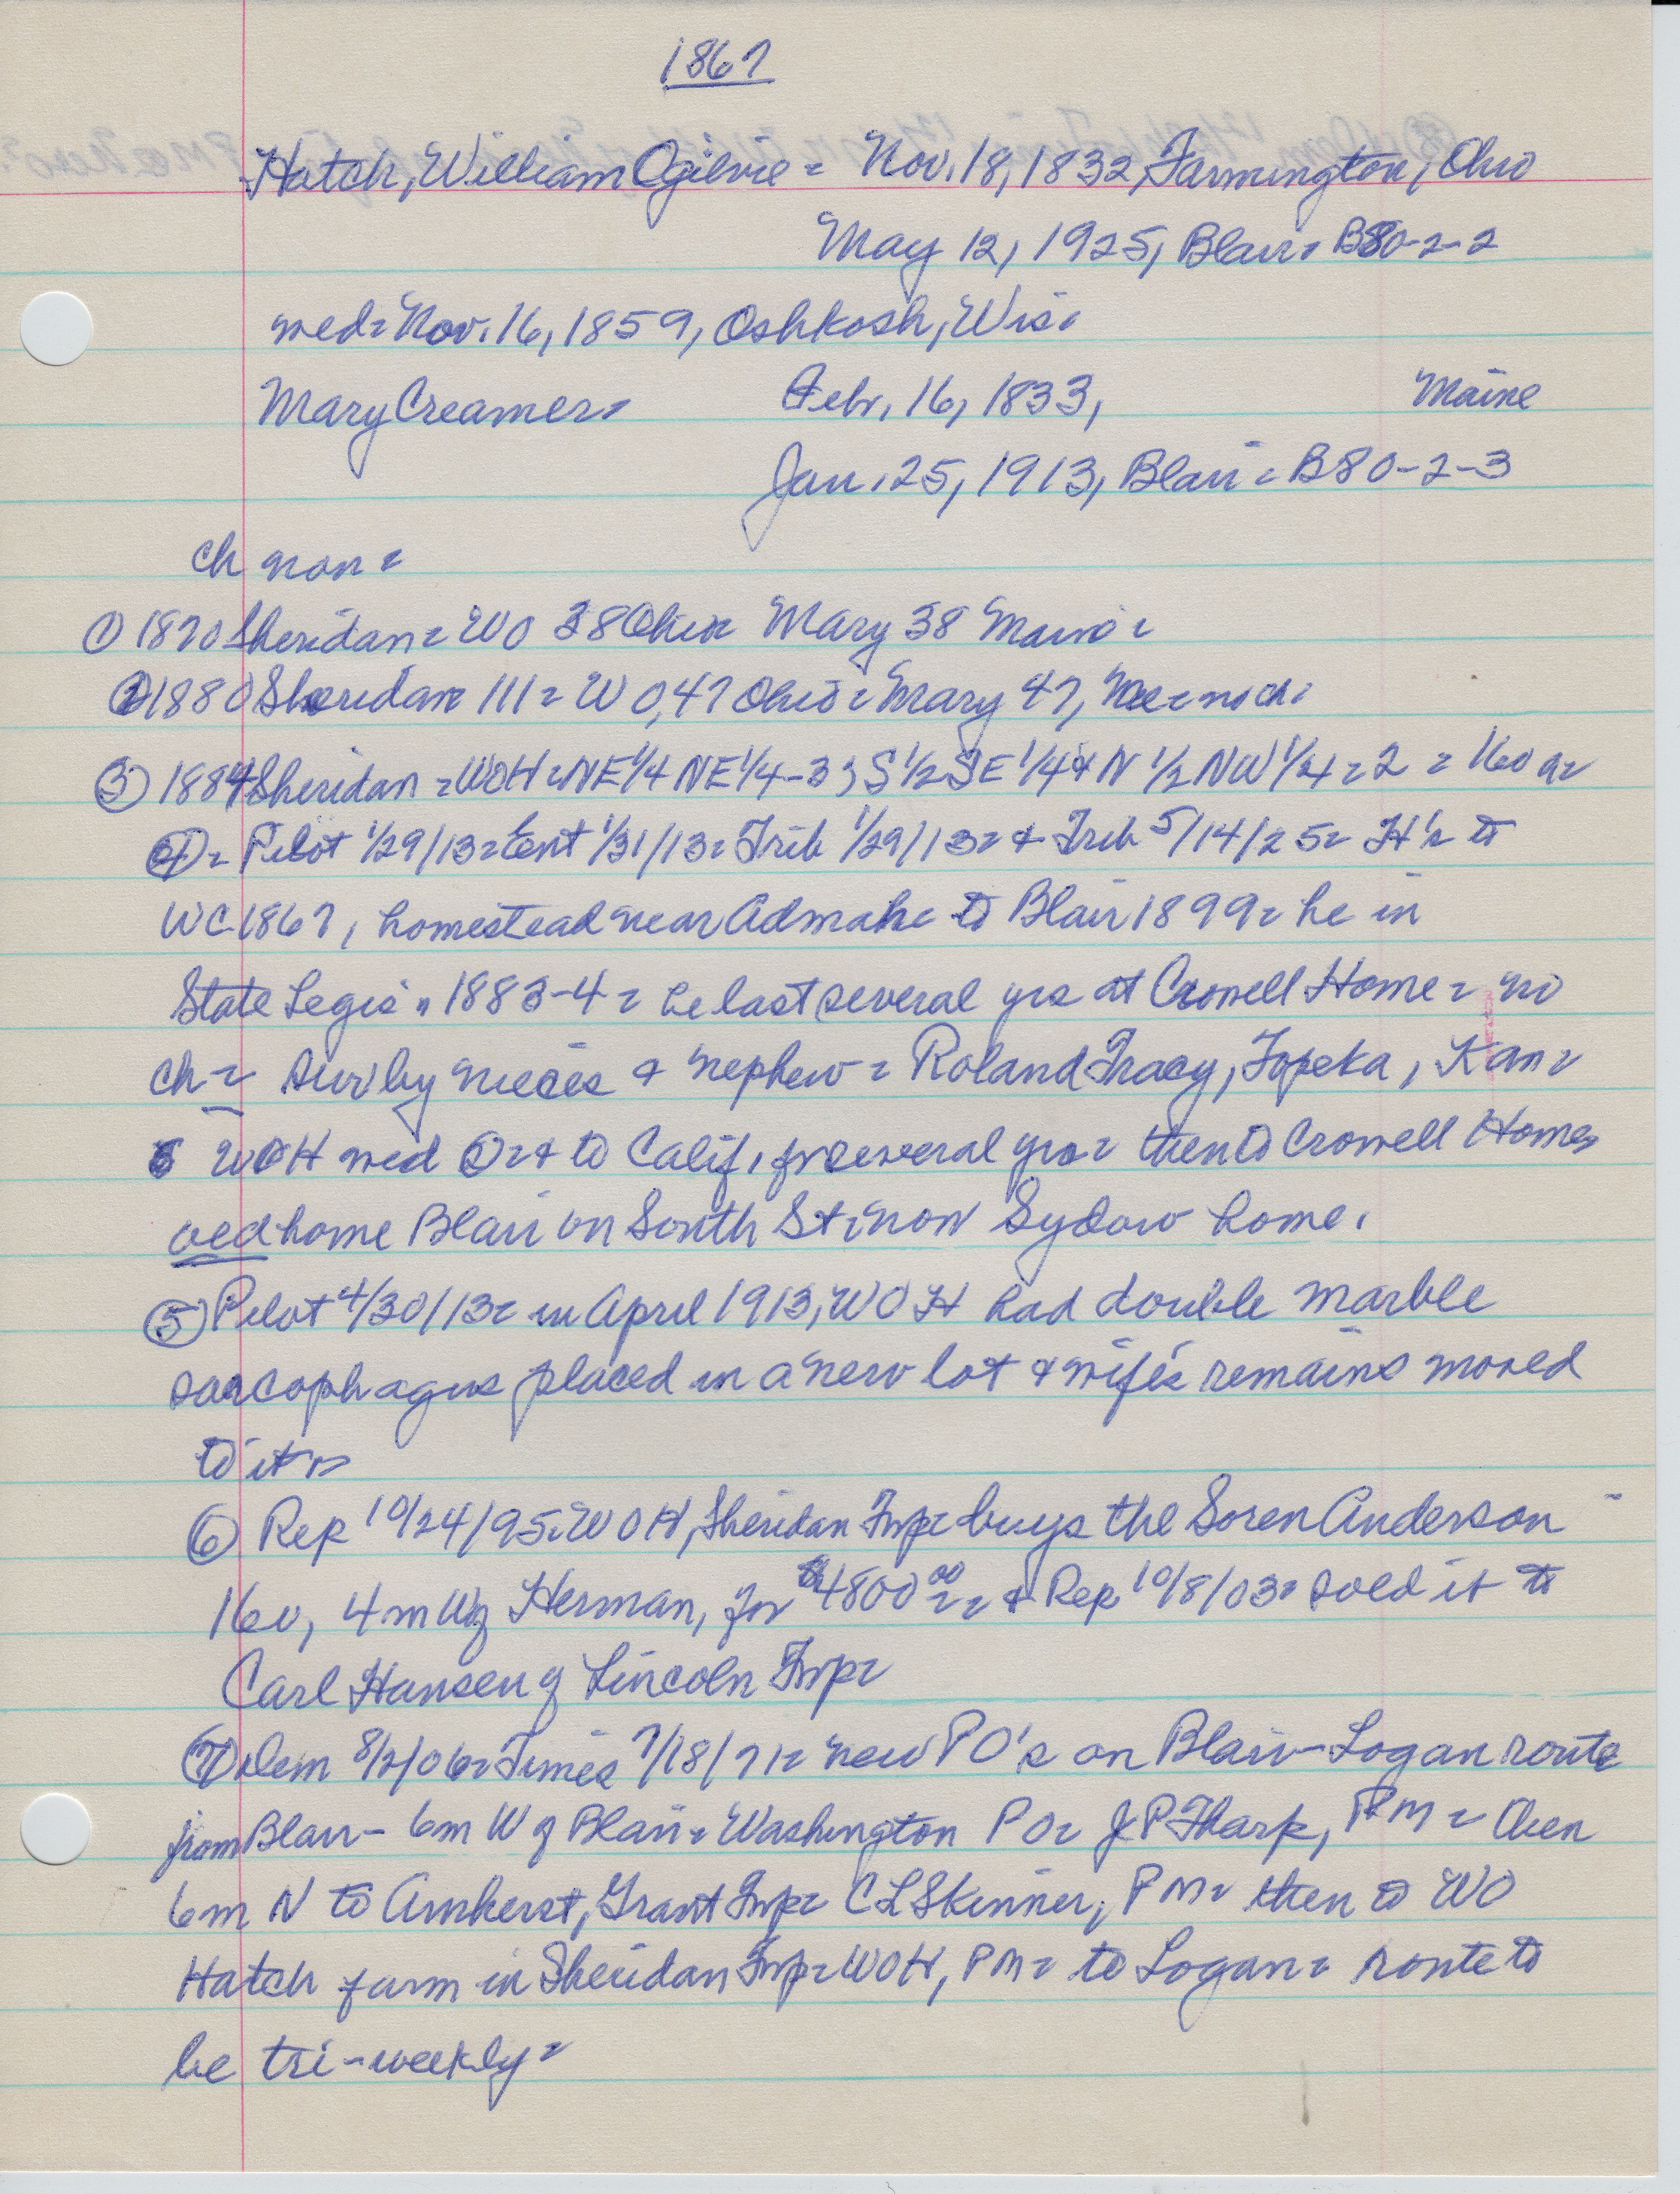 1867
Hatch, William Ogilvie = Nov. 18, 1832, Farmington, Ohio
May 12, 1925, Blair = B80-2-2
med = Nov. 16, 1859, Oshkosh, Wis.
Mary Creamer = Febr. 16, 1833, Maine
Jan. 25, 1913, Blair = B80-2-3
ch non =
① 1870 Sheridan = WO 38 Ohio = Mary 38 Maine =
② 1880 Sheridan = 111 = WO, 47 Ohio = Mary 47, Me = no ch.
③ 1884 Sheridan = WOH = NE 1/4 NE 1/4-3; S 1/2 SE 1/4 & N 1/2 NW 1/4 = 2 = 160 a =
④ = Pilot 1/29/13 = Ent 1/31/13 = Trib 1/29/13 = & Trib 5/14/25 = H's to
WC 1867, homestead near Admah = to Blair 1899 = he in
State Legis. 1883-4 = he last several yrs at Crowell Home = no
ch = Surv by nieces & nephew = Roland Tracy, Topeka, Kan =
WOH med ② = & to Calif. for several yrs = then to Crowell Home,
oed home Blair on South St = now Sydow home.
⑤ Pilot 4/30/13 = in April 1913, WOH had double marble
sarcophagus placed in a new lot & wife's remains moved
to it =
⑥ Rep 10/24/95 = WOH, Sheridan Twp = buys the Soren Anderson
160, 4 m W of Herman, for $4800 00 = & Rep 10/8/03 = sold it to
Carl Hansen of Lincoln Twp =
⑦ Dem 8/2/06 = Times 7/18/71 = new PO's on Blair-Logan route
from Blair - 6m W of Blair = Washington PO = J P Tharp, PM = then
6m N to Amherst, Grant Twp = C L Skinner, PM = then to WO
Hatch farm in Sheridan Twp = WOH, PM = to Logan = route to
be tri-weekly =